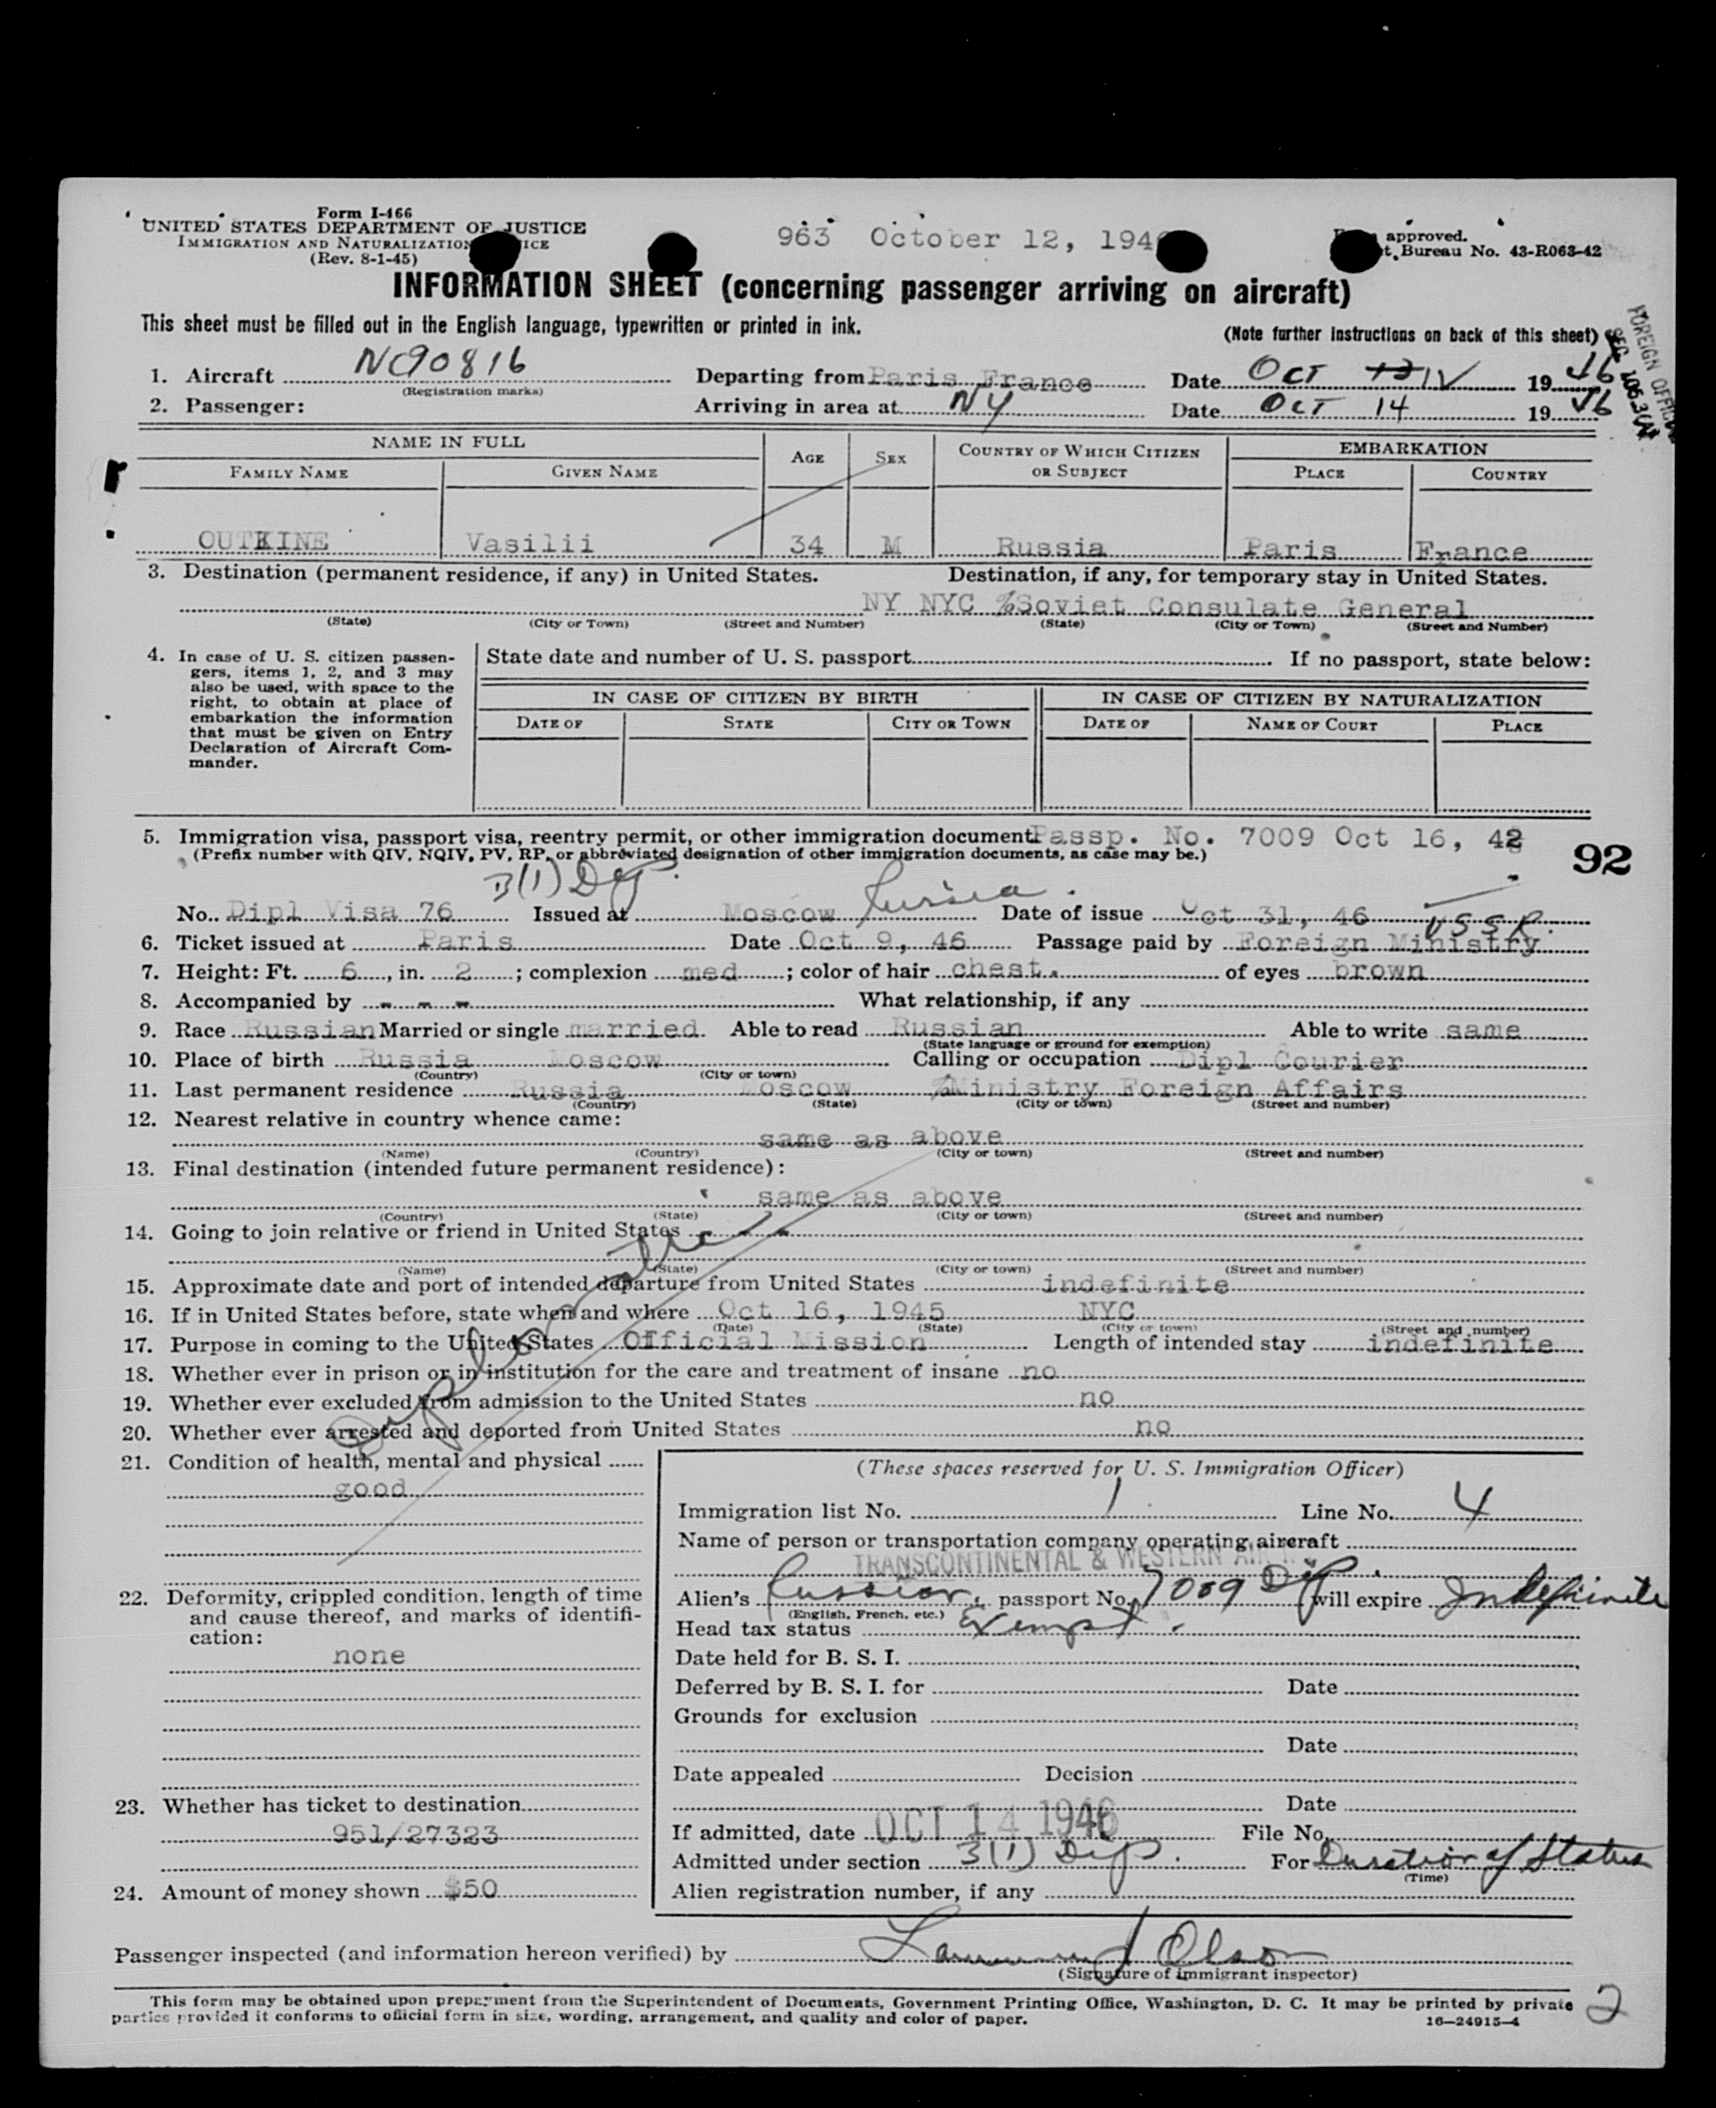 Form I-466
UNITED STATES DEPARTMENT OF JUSTICE
IMMIGRATION AND NATURALIZATION
(Rev. 8-1-45)
963 October 12, 194
approved.
Bureau No. 43-R063-42
INFORMATION SHEET (concerning passenger arriving on aircraft)
This sheet must be filled out in the English language, typewritten or printed in ink.
(Note further instructions on back of this sheet)
FOREIGN OFFICIAL
SEC
1. Aircraft NC90816 Departing from Paris France Date OCT 1946
(Registration marks)
2. Passenger: Arriving in area at NY Date OCT 14 1946
NAME IN FULL AGE SEX COUNTRY OF WHICH CITIZEN OR SUBJECT EMBARKATION
FAMILY NAME GIVEN NAME PLACE COUNTRY
OUTKINE Vasilii 34 M Russia Paris France
3. Destination (permanent residence, if any) in United States. Destination, if any, for temporary stay in United States.
NY NYC %Soviet Consulate General
(State) (City or Town) (Street and Number) (State) (City or Town) (Street and Number)
4. In case of U. S. citizen passen-
gers, items 1, 2, and 3 may
also be used, with space to the
right, to obtain at place of
embarkation the information
that must be given on Entry
Declaration of Aircraft Com-
mander.
State date and number of U. S. passport If no passport, state below:
IN CASE OF CITIZEN BY BIRTH IN CASE OF CITIZEN BY NATURALIZATION
DATE OF STATE CITY OR TOWN DATE OF NAME OF COURT PLACE
5. Immigration visa, passport visa, reentry permit, or other immigration document Passp. No. 7009 Oct 16, 42
(Prefix number with QIV, NQIV, PV, RP, or abbreviated designation of other immigration documents, as case may be.)
92
3(1) Dip.
No. Dipl Visa 76 Issued at Moscow Russia Date of issue Oct 31, 46
USSR.
6. Ticket issued at Paris Date Oct 9, 46 Passage paid by Foreign Ministry
7. Height: Ft. 6, in. 2; complexion med; color of hair chest. of eyes brown
8. Accompanied by - - - What relationship, if any
9. Race Russian Married or single married. Able to read Russian Able to write same
(State language or ground for exemption)
10. Place of birth Russia Moscow Calling or occupation Dipl Courier
(Country) (City or town)
11. Last permanent residence Russia Moscow %Ministry Foreign Affairs
(Country) (State) (City or town) (Street and number)
12. Nearest relative in country whence came:
same as above
(Name) (Country) (City or town) (Street and number)
13. Final destination (intended future permanent residence):
same as above
(Country) (State) (City or town) (Street and number)
14. Going to join relative or friend in United States
(Name) (State) (City or town) (Street and number)
Diplomatic
15. Approximate date and port of intended departure from United States indefinite
16. If in United States before, state when and where Oct 16, 1945 NYC
(Date) (State) (City or town) (Street and number)
17. Purpose in coming to the United States Official Mission Length of intended stay indefinite
18. Whether ever in prison or in institution for the care and treatment of insane no
19. Whether ever excluded from admission to the United States no
20. Whether ever arrested and deported from United States no
21. Condition of health, mental and physical
good
22. Deformity, crippled condition, length of time
and cause thereof, and marks of identifi-
cation:
none
23. Whether has ticket to destination
951/27323
24. Amount of money shown $50
(These spaces reserved for U. S. Immigration Officer)
Immigration list No. 1 Line No. 4
Name of person or transportation company operating aircraft
TRANSCONTINENTAL & WESTERN AIR
Alien's Russian passport No. 7009 Dip. will expire Indefinite
(English, French, etc.)
Head tax status Exempt.
Date held for B. S. I.
Deferred by B. S. I. for Date
Grounds for exclusion
Date
Date appealed Decision
Date
If admitted, date OCT 14 1946 File No.
Admitted under section 3(1) Dip. For Duration of Status
(Time)
Alien registration number, if any
Passenger inspected (and information hereon verified) by Olson
(Signature of immigrant inspector)
This form may be obtained upon prepayment from the Superintendent of Documents, Government Printing Office, Washington, D. C. It may be printed by private
parties provided it conforms to official form in size, wording, arrangement, and quality and color of paper.
16—24915-4
2